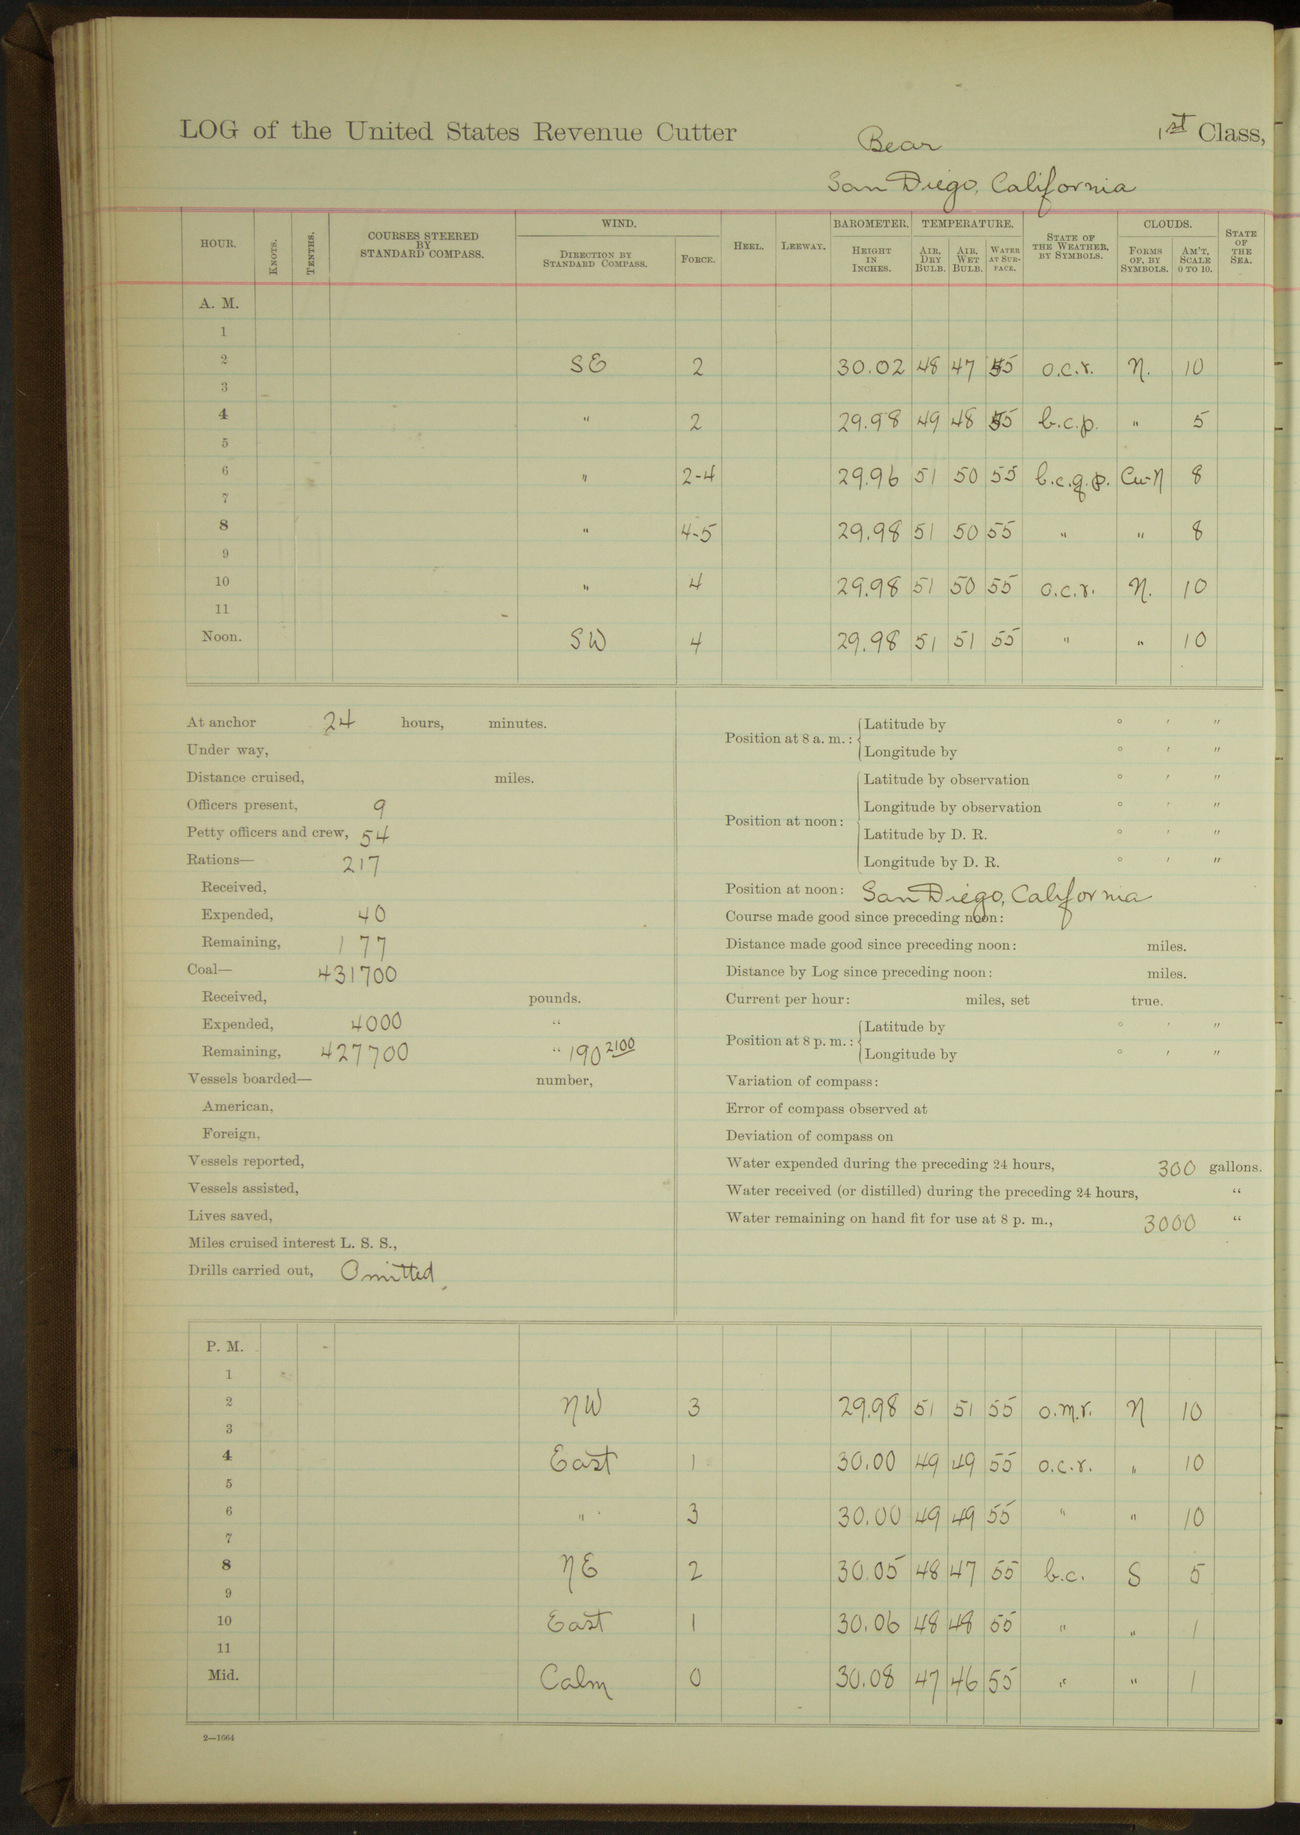 LOG of the United States Revenue Cutter Bear 1st Class,
San Diego, California
HOUR. KNOTS. TENTHS. COURSES STEERED BY STANDARD COMPASS. WIND. DIRECTION BY STANDARD COMPASS. FORCE. HEEL. LEEWAY. BAROMETER. HEIGHT IN INCHES. TEMPERATURE. AIR, DRY BULB. AIR, WET BULB. WATER AT SURFACE. STATE OF THE WEATHER, BY SYMBOLS. CLOUDS. FORMS OF, BY SYMBOLS. AM'T, SCALE 0 TO 10. STATE OF THE SEA.
A. M.
1
2 SE 2 30.02 48 47 55 o.c.r. N. 10
3
4 " 2 29.98 49 48 55 b.c.p. " 5
5
6 " 2-4 29.96 51 50 55 b.c.q.p. Cu-N 8
7
8 " 4-5 29.98 51 50 55 " " 8
9
10 " 4 29.98 51 50 55 o.c.r. N. 10
11
Noon. SW 4 29.98 51 51 55 " " 10
At anchor 24 hours, minutes.
Under way,
Distance cruised, miles.
Officers present, 9
Petty officers and crew, 54
Rations— 217
Received,
Expended, 40
Remaining, 177
Coal— 431700
Received, pounds.
Expended, 4000 "
Remaining, 427700 " 190 2100
Vessels boarded— number,
American,
Foreign,
Vessels reported,
Vessels assisted,
Lives saved,
Miles cruised interest L. S. S.,
Drills carried out, Omitted
Position at 8 a. m.: Latitude by ° ′ ″
Longitude by ° ′ ″
Position at noon: Latitude by observation ° ′ ″
Longitude by observation ° ′ ″
Latitude by D. R. ° ′ ″
Longitude by D. R. ° ′ ″
Position at noon: San Diego, California
Course made good since preceding noon:
Distance made good since preceding noon: miles.
Distance by Log since preceding noon: miles.
Current per hour: miles, set true.
Position at 8 p. m.: Latitude by ° ′ ″
Longitude by ° ′ ″
Variation of compass:
Error of compass observed at
Deviation of compass on
Water expended during the preceding 24 hours, 300 gallons.
Water received (or distilled) during the preceding 24 hours, "
Water remaining on hand fit for use at 8 p. m., 3000 "
P. M.
1
2 NW 3 29.98 51 51 55 o.m.r. N 10
3
4 East 1 30.00 49 49 55 o.c.r. " 10
5
6 " 3 30.00 49 49 55 " " 10
7
8 NE 2 30.05 48 47 55 b.c. S 5
9
10 East 1 30.06 48 48 55 " " 1
11
Mid. Calm 0 30.08 47 46 55 " " 1
2—1664